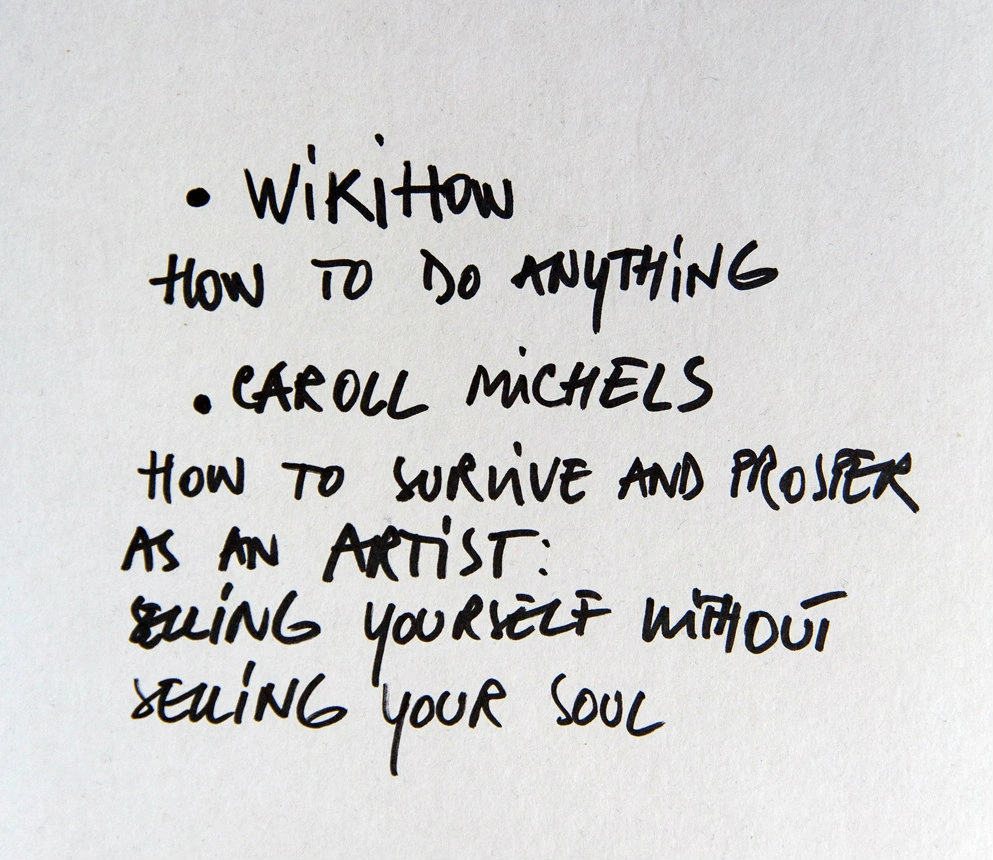 • WiKiHOW
HOW TO DO ANYTHiNG
• CAROLL MiCHELS
HOW TO SURViVE AND PROSPER
AS AN ARTiST:
SELLiNG YOURSELF WiTHOUT
SELLiNG YOUR SOUL